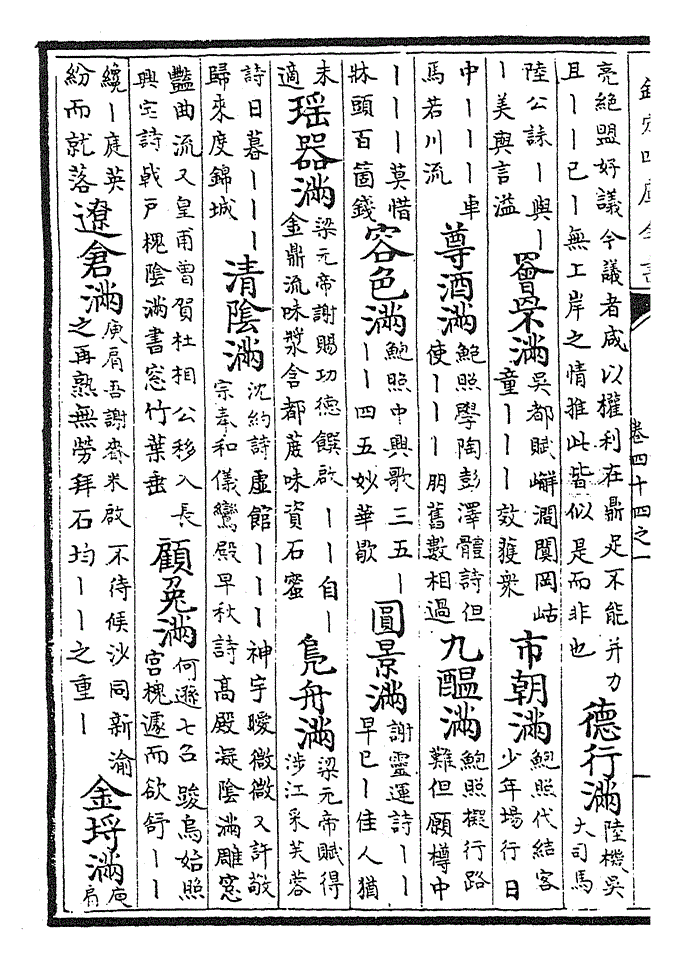 欽定四庫全書
卷四十四之一
亮絶盟好議今議者咸以權利在鼎足不能并力
且丨丨已丨無上岸之情推此皆似是而非也
德行滿
陸機吳
大司馬
陸公誄丨與丨
丨美與言溢
罾罘滿
吳都賦㠍澗闃岡岵
童丨丨丨效獲衆
市朝滿
鮑照代結客
少年場行日
中丨丨丨車
馬若川流
尊酒滿
鮑照學陶彭澤體詩但
使丨丨丨朋舊數相過
九醖滿
鮑照擬行路
難但願樽中
丨丨丨莫惜
牀頭百箇錢
容色滿
鮑照中興歌三五丨
丨丨四五妙華歇
圓景滿
謝靈運詩丨丨
早已丨佳人猶
未
適
瑶器滿
梁元帝謝賜功德饌啟丨丨自丨
金鼎流味漿含都蔗味資石蜜
鳬舟滿
梁元帝賦得
涉江采芙蓉
詩日暮丨丨丨
歸來度錦城
清隂滿
沈約詩虚館丨丨丨神宇曖微微又許敬
宗奉和儀鸞殿早秋詩高殿凝隂滿雕窓
豔曲流又皇甫曽賀杜相公移入長
興宅詩戟戸槐隂滿書窓竹葉垂
顧兎滿
何遜七召踆烏始照
宫槐遽而欲舒丨丨
纔丨庭英
紛而就落
遼倉滿
庾肩吾謝賚米啟不待候沙同新渝
之再熟無勞拜石均丨丨之重丨
金埒滿
庾
肩